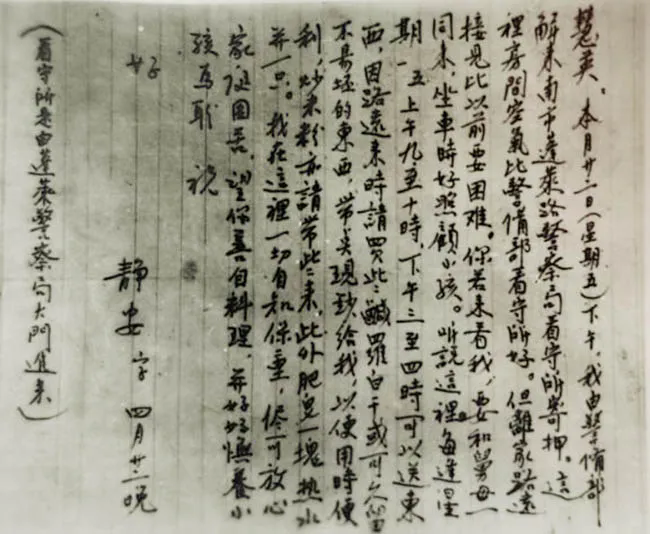 慧英。本月廿二日(星期五)下午，我由警備部
解来南市蓬萊路警察局看守所寄押。這
裡房間空氣比警備部看守所好。但離家路遠
接見比以前要困难。你若来看我，要和舅母一
同来，坐車時好照顧小孩。听説這裡每逢星
期一、五上午九至十時，下午三至四時可以送東
西，因路遠来時請買些鹹羅白干或可久留
不易坯的東西，帶些現鈔給我，以便用時便
利，炒米粉亦請带些来，此外肥皂一塊热水
并一只。我在這裡一切自知保重，儘可放心
家從困苦，望你善自料理，并好好撫養小
孩為盼 祝
好
静安字 四月廿二晚
(看守所是由蓬萊警察局大門進来)